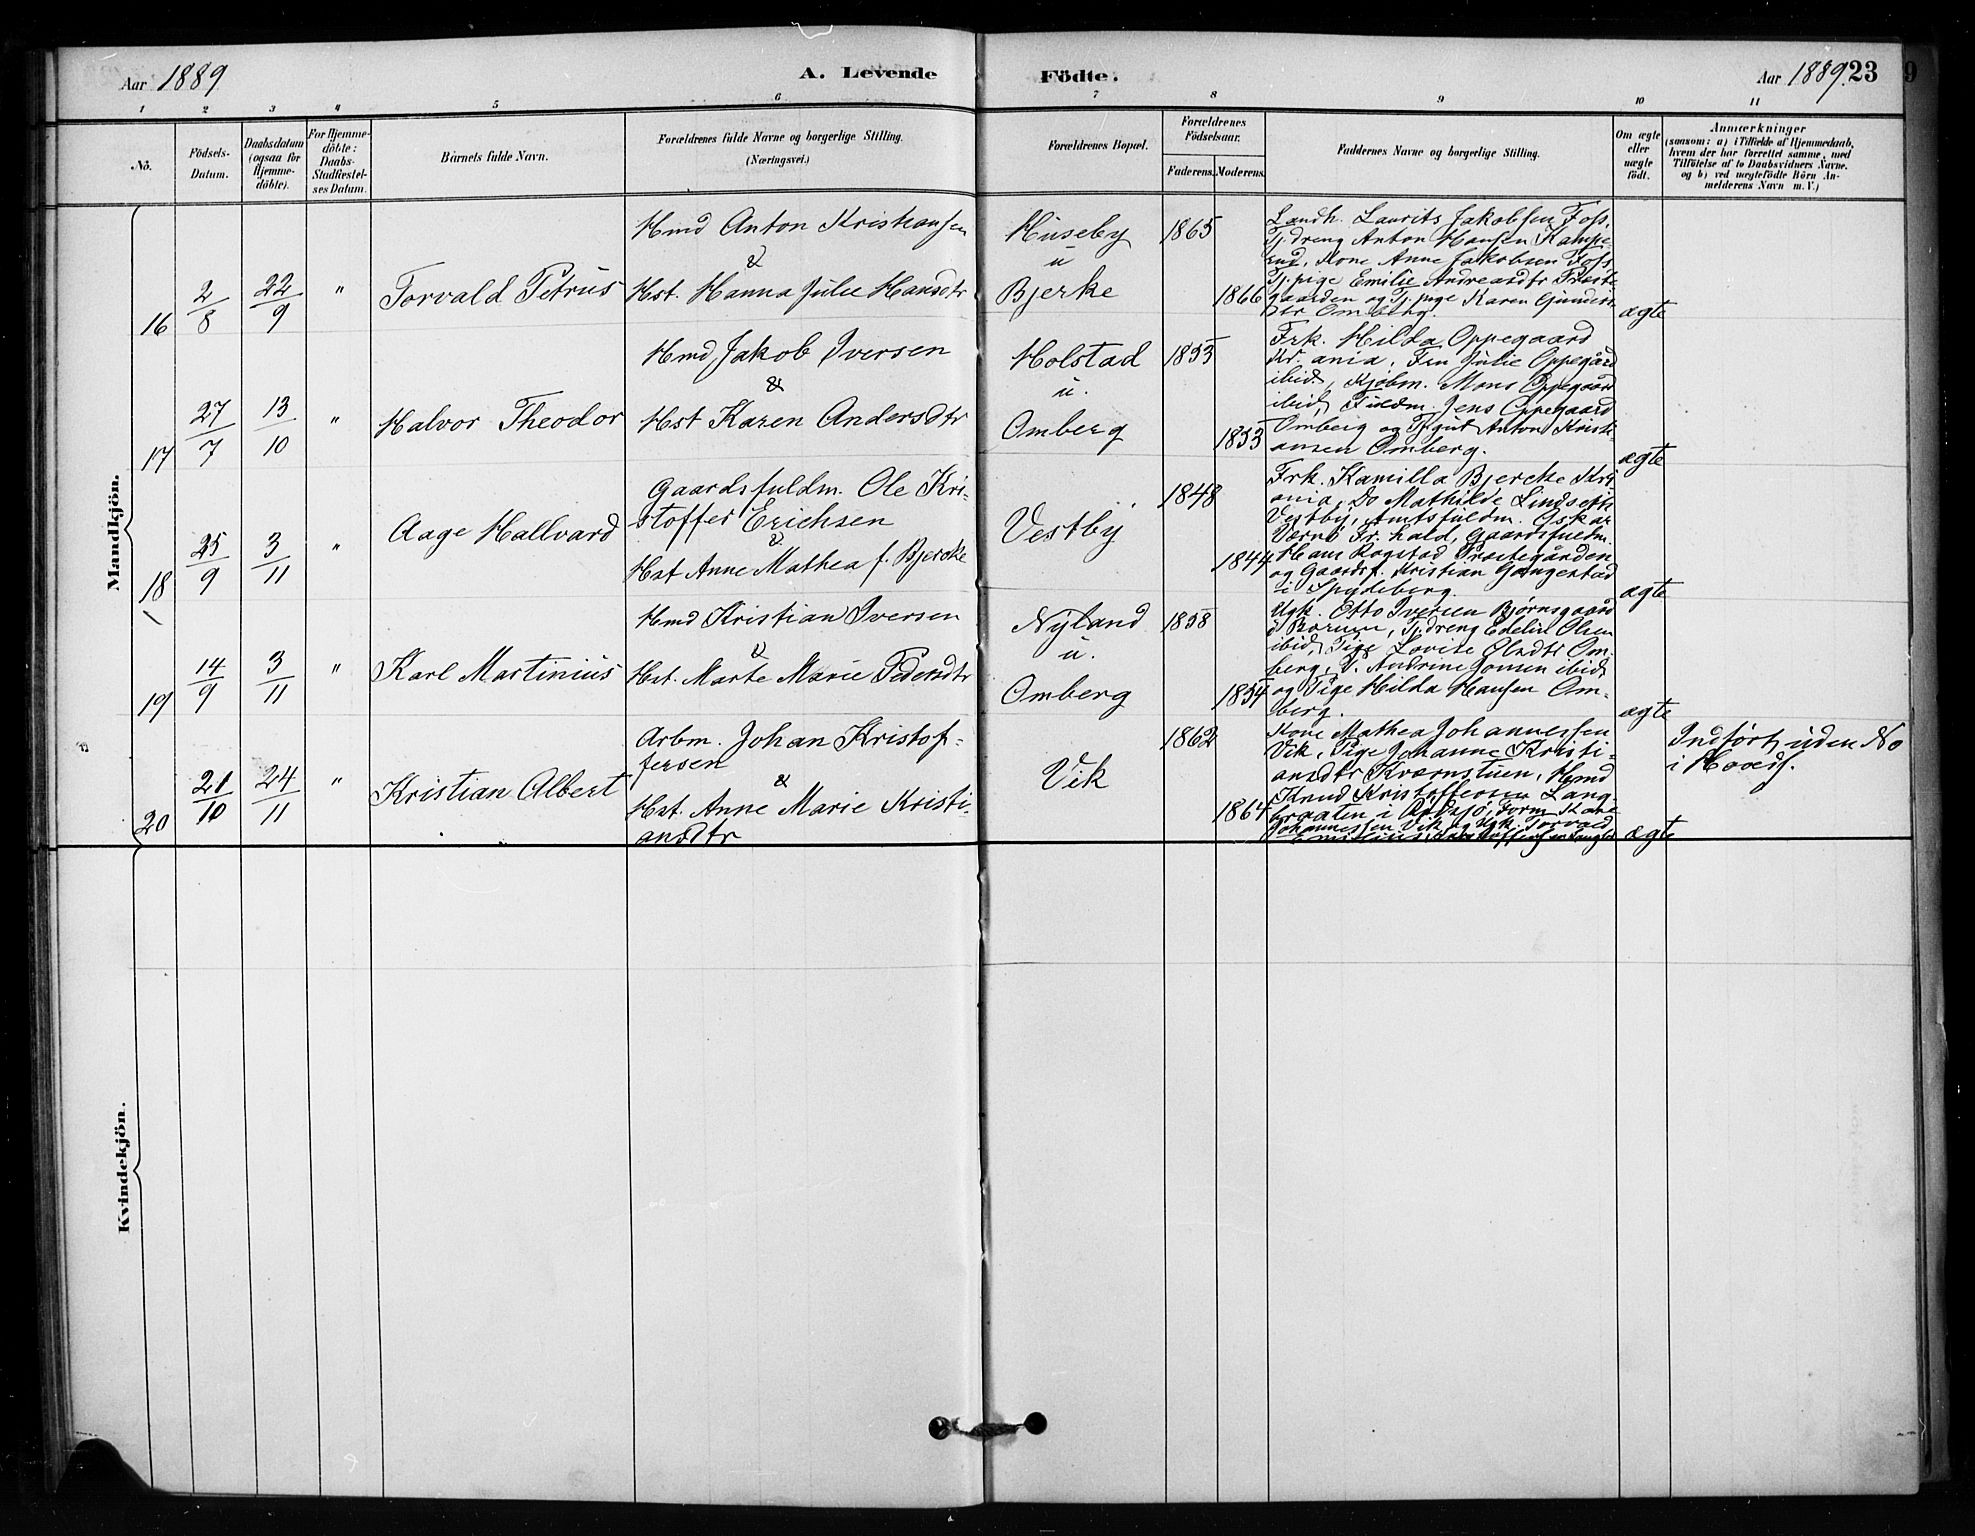 Aar 1889
A. Levende Födte.
Aar 1889. 23
9
1 2 3 4 5 6 7 8 9 10 11
No.
Födsels-Datum.
Daabsdatum (ogsaa for Hjemme-döbte).
For Hjemme-döbte: Daabs-Stadfæstel-ses Datum.
Barnets fulde Navn.
Forældrenes fulde Navne og borgerlige Stilling.
(Næringsvei.)
Forældrenes Bopæl.
Forældrenes Födselsaar.
Faderens. Moderens.
Faddernes Navne og borgerlige Stilling.
Om ægte eller uægte födt.
Anmærkninger
(saasom: a) i Tilfælde af Hjemmedaab,
hvem der har forrettet samme, med
Tilföielse af to Daabsvidners Navne.
og b) ved uægtefödte Börn An-
melderens Navn m. V.)
Mandkjön.
16 2/8 22/9 " Torvald Petrus
Hmd Anton Kristiansen
&
Hst. Hanna Julie Hansdtr
Huseby
u
Bjerke
1865
1866
Landh. Laurits Jakobsen Foss,
Tj.dreng Anton Hansen Kampe-
rud, Kone Anne Jakobsen Foss,
Tj.pige Emilie Andreasdtr Præste-
gaarden og Tj.pige Karen Gunders-
dtr Omberg.
ægte
17 27/7 13/10 " Halvor Theodor
Hmd, Jakob Iversen
&
Hst Karen Andersdtr
Holstad
u.
Omberg
1853
1853
Frk. Hilda Oppegaard
Kr.ania, Fru Julie Oppegård
ibid., Kjøbm. Mons Oppegaard
ibid, Fuldm. Jens Oppegaard
Omberg og Tj.gut Anton Kristi-
ansen Omberg.
ægte
18 25/9 3/11 " Aage Hallvard
Gaardsfuldm. Ole Kri-
stoffer Erichsen
&
Hst Anne Mathea f. Bjercke
Vestby
1848
1844
Frk. Kamilla Bjercke Kri
ania, Do Mathilde Lindseth
Vestby, Amtsfuldm. Oskar
Værnø Fr.hald, Gaardsfuldm.
Hans Rogstad Præstegården
og Gaardsf. Kristian Gangestad
i Spydeberg.
ægte
19 14/9 3/11 " Karl Martinius
Hmd Kristian Iversen
&
Hst. Marte Marie Pedersdtr
Nyland
u.
Omberg
1858
1854
Ugk. Otto Iversen Bjørnsgaard
i Bærum, Tj.dreng Edelin Olsen
ibid, Pige Lovise Olsdtr Om-
berg, P. Andrine Jonsen ibid
og Pige Hilda Hansen Om-
berg.
ægte
20 21/10 24/11 " Kristian Albert
Arbm. Johan Kristof-
fersen
&
Hst. Anne Marie Kristi-
ansdtr
Vik
1862
1864
Kone Mathea Johannessen
Vik, Pige Johanne Kristi-
ansdtr Kværnstuen, Hmd
Knud Kristoffersen Lang-
braaten i
Johannessen Vik og Ugk. Torvald
ægte
Indført uden No
i Hovedj.
Kvindekjön.